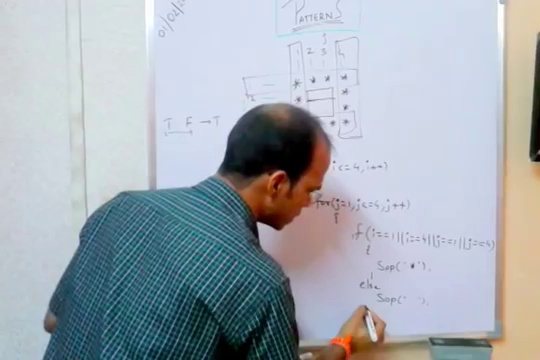 01/02/
PATTERNS
j
1 2 3 4
* * * *
* *
* *
T F → T
i<=4, i++)
for(j=1, j<=4, j++)
{
if(i==1||i==4||j==1||j==4)
{
Sop("*"),
}
else
Sop(" "),